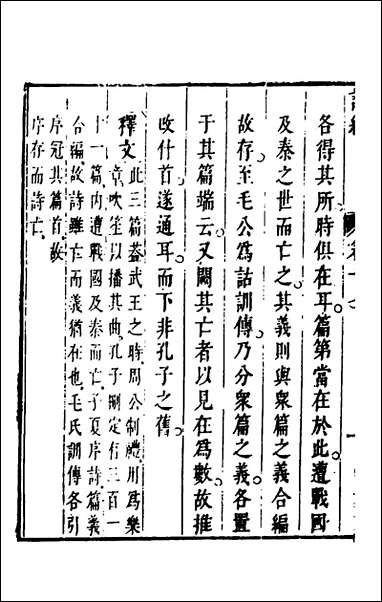 各得其所時俱在耳篇第當在於此遭戰國
及秦之世而亡之其義則與衆篇之義合編
故存至毛公爲詁訓傳乃分衆篇之義各置
于其篇端云又闕其亡者以見在爲數故推
改什首遂通耳而下非孔子之舊
釋文此三篇葢武王之時周公制禮用爲樂
章吹笙以播其曲孔子刪定在三百一
十一篇内遭戰國及秦而亡子夏序詩篇義
合編故詩雖亡而義猶在也毛氏訓傳各引
序冠其篇首故
序存而詩亡